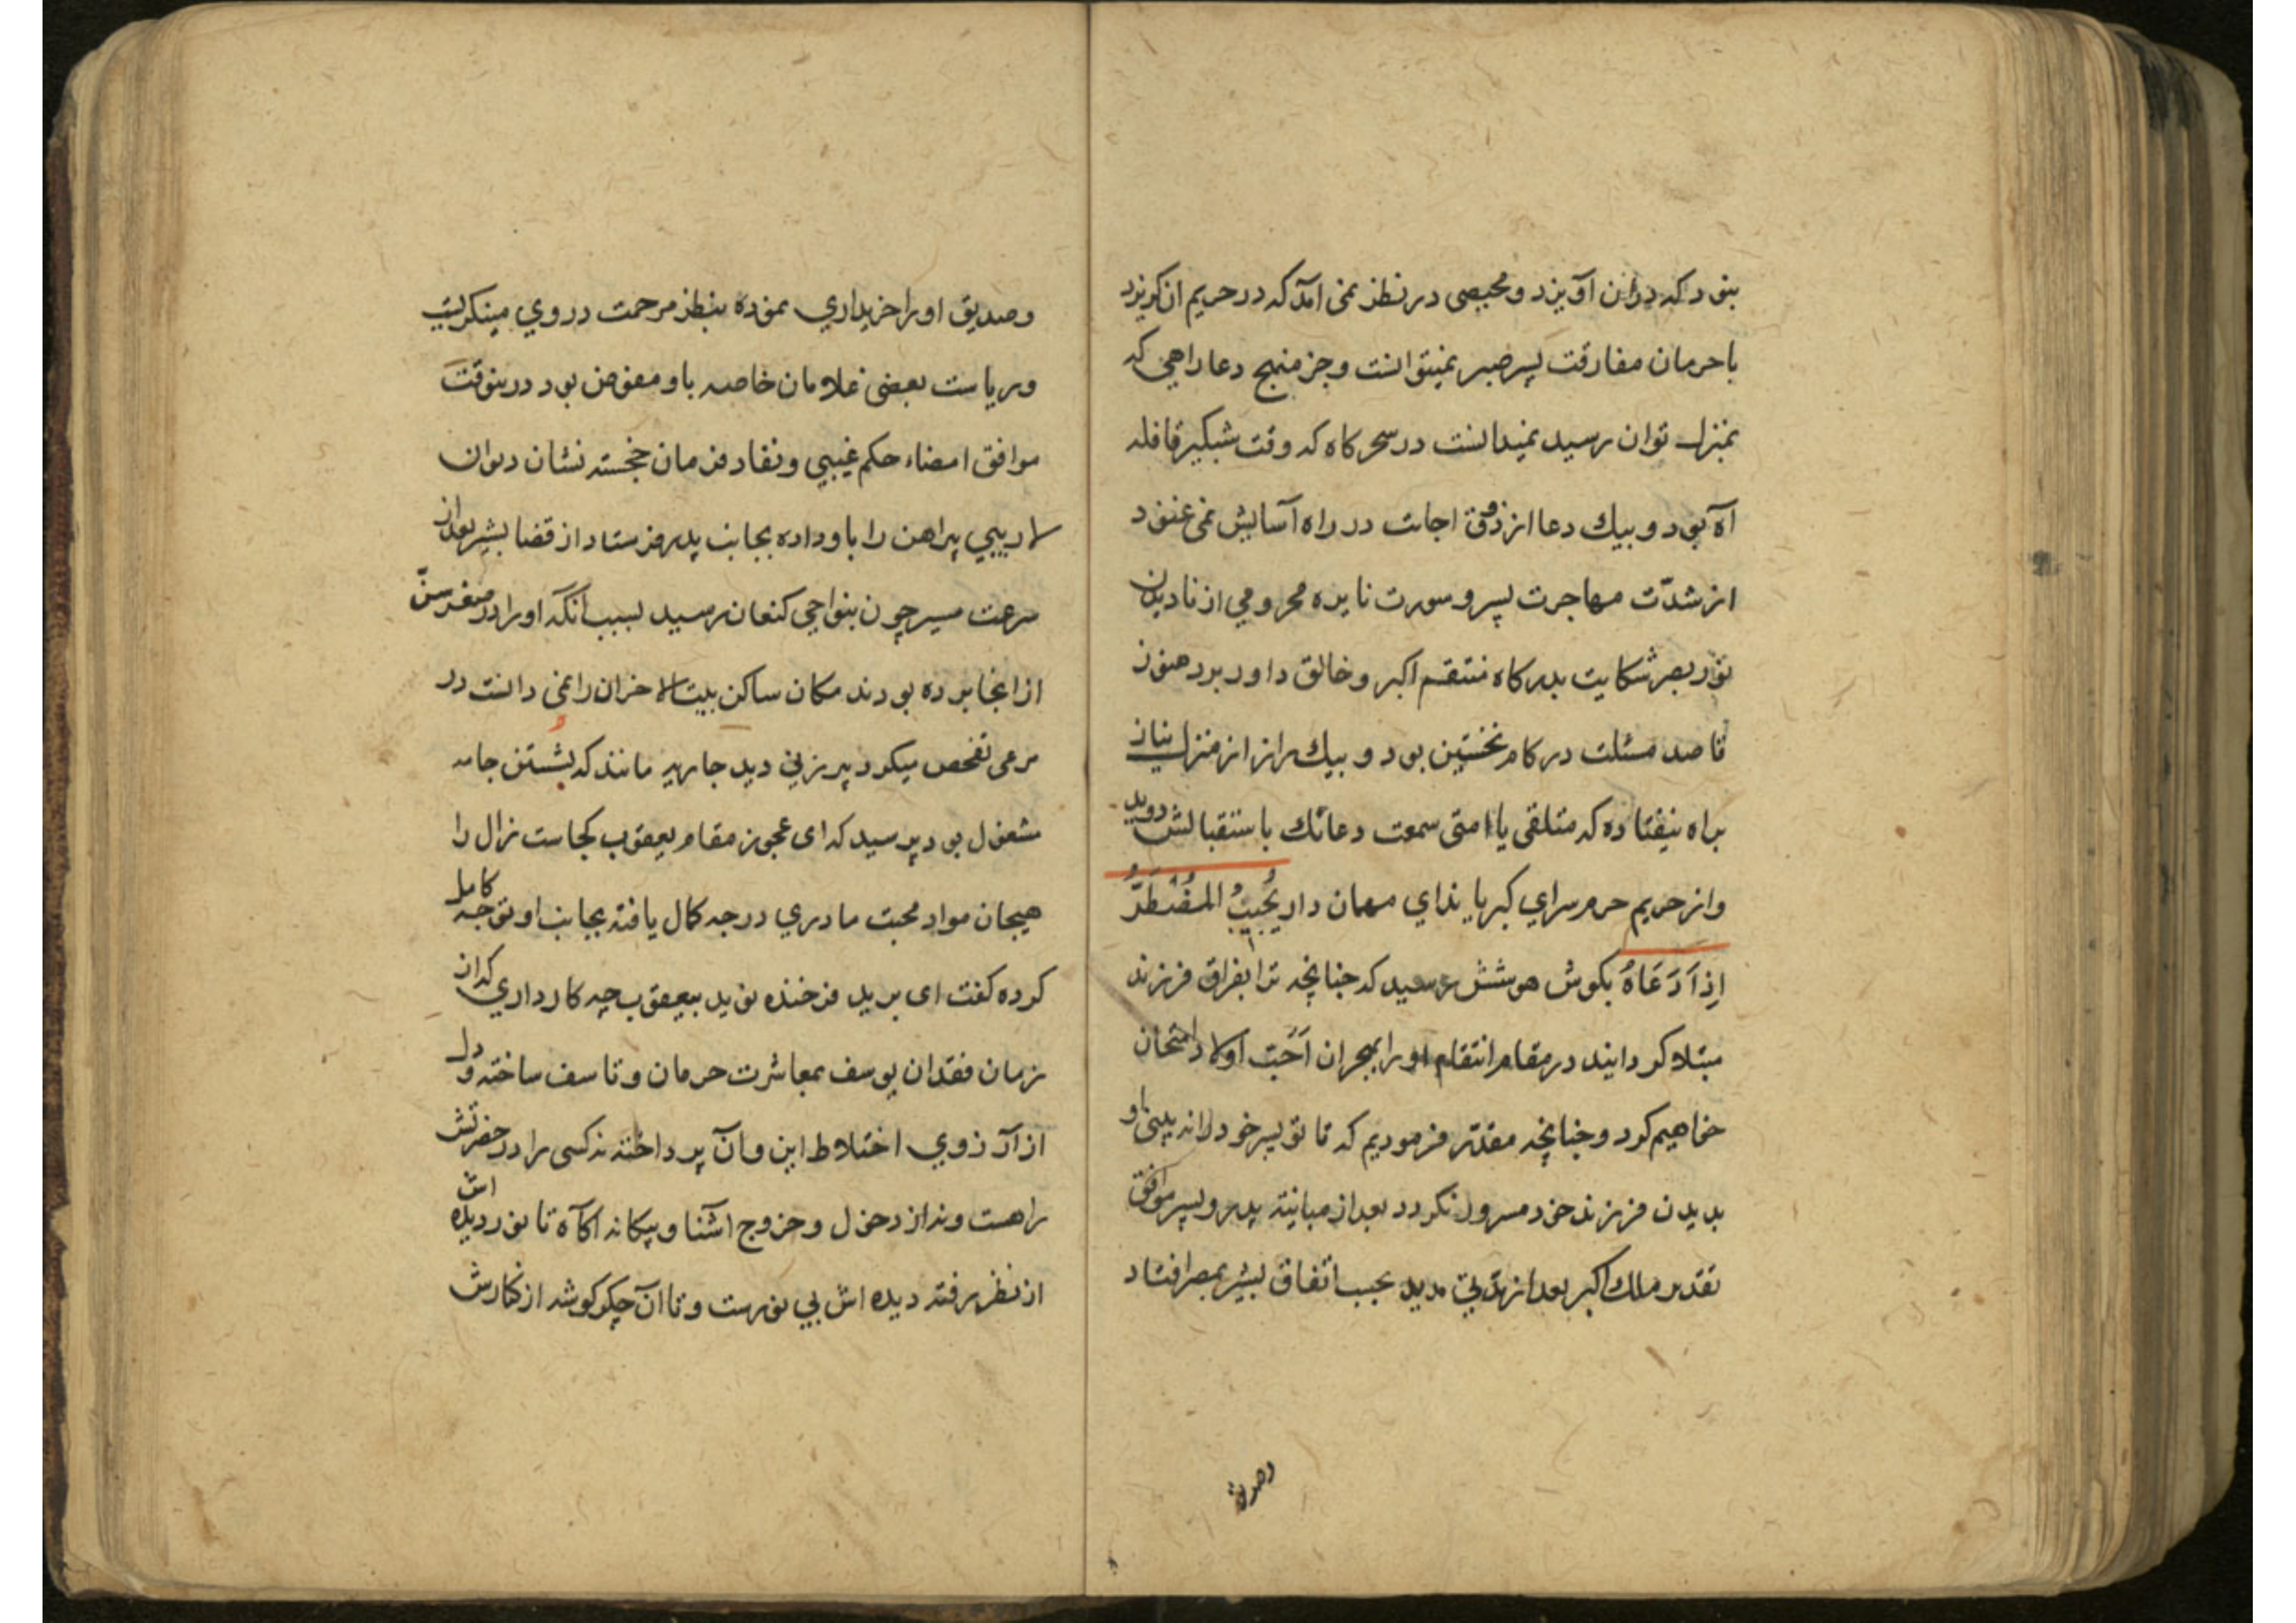 بنود که دران آویزد و محیصی در نظر نمی آمد که در حریم ان کریزد
با حرمان مفارقت پسر صبر نمیتوانست و جز منهج دعا راهی که
بمنزل توان رسید نمیدانست در سحر کاه که وقت شبکیر قافله
آه بود و پیك دعا از ذوق اجابت در راه آسایش نمی غنود
از شدّت مهاجرت پسر و سورت نایره محرومی از نادیدن
نور بصر شکایت بدرکاه منتقم اکبر و خالق داور برد هنوز
قاصد مسئلت در کام نخستین بود و پیك راز از منزل نیاز
براه نیفتاده که متلقی یا امتی سمعت دعائك باستقبالش دوید
و از حریم حرم سرای کبریا ندای مهمان دار یُجیبُ المُضْطَرَّ
اِذَا دَعَاهُ بکوش هوشش رسید که چنانچه ترا بفراق فرزند
مبتلا کردانید در مقام انتقام او را بهجران اَحَبّ اولاد امتحان
خواهیم کرد و چنانچه مقدّر فرمودیم که تا تو پسر خود را نه بینی او
بدیدن فرزند خود مسرور نکردد بعد از مباینة پدر و پسر موافق
تقدیر ملك اکبر بعد از مدتی مدید بحسب اتفاق بشیر بمصر افتاد
وصدیق
وصدیق او را خریداری نموده بنظر مرحمت در وی مینکریست
و ریاست بعضی غلامان خاصه باو مفوض بود درینوقت
موافق امضاء حکم غیبی و نفاد فرمان خجسته نشان دیوان
لاریبی پیراهن را باو داده بجانب پدر فرستاد از قضا بشیر بعد از
سرعت مسیر چون بنواحی کنعان رسید بسبب آنکه او را در صغر سنّ
از انجا برده بودند مکان ساکن بیت الاحزان را نمی دانست در
مرعی تفحص میکرد پیر زنی دید جاریه مانند که بشستن جامه
مشغول بود پرسید که ای عجوز مقام یعقوب کجاست زال را
هیجان مواد محبت مادری درجه کمال یافته بجانب او توجه کامل
کرده کفت ای برید فرخنده نوید بیعقوب چه کار داری که از
زمان فقدان یوسف بمعاشرت حرمان و تاسف ساخته و دل
از آرزوی اختلاط این و آن پرداخته نه کسی را در حضرتش
راهست و نه از دخول و خروج آشنا و بیکانه اکاه تا نور دیده اش
از نظر رفته دیده اش بی نورست و تا آن جکر کوشه از کنارش